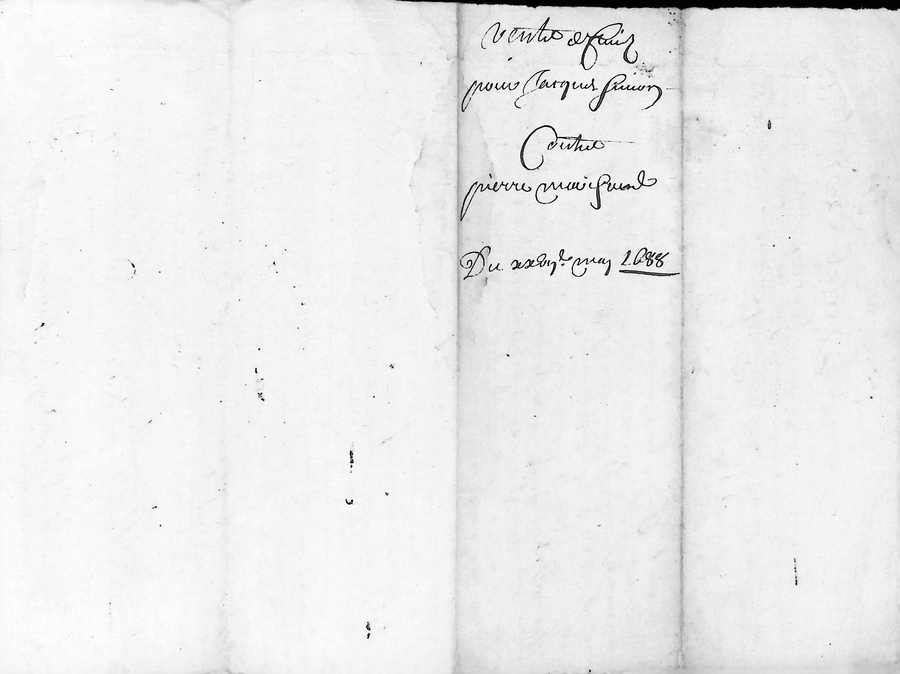 Vente
pour Jacques Simon
Contre
pierre marchand
Du xxvje. may 1688